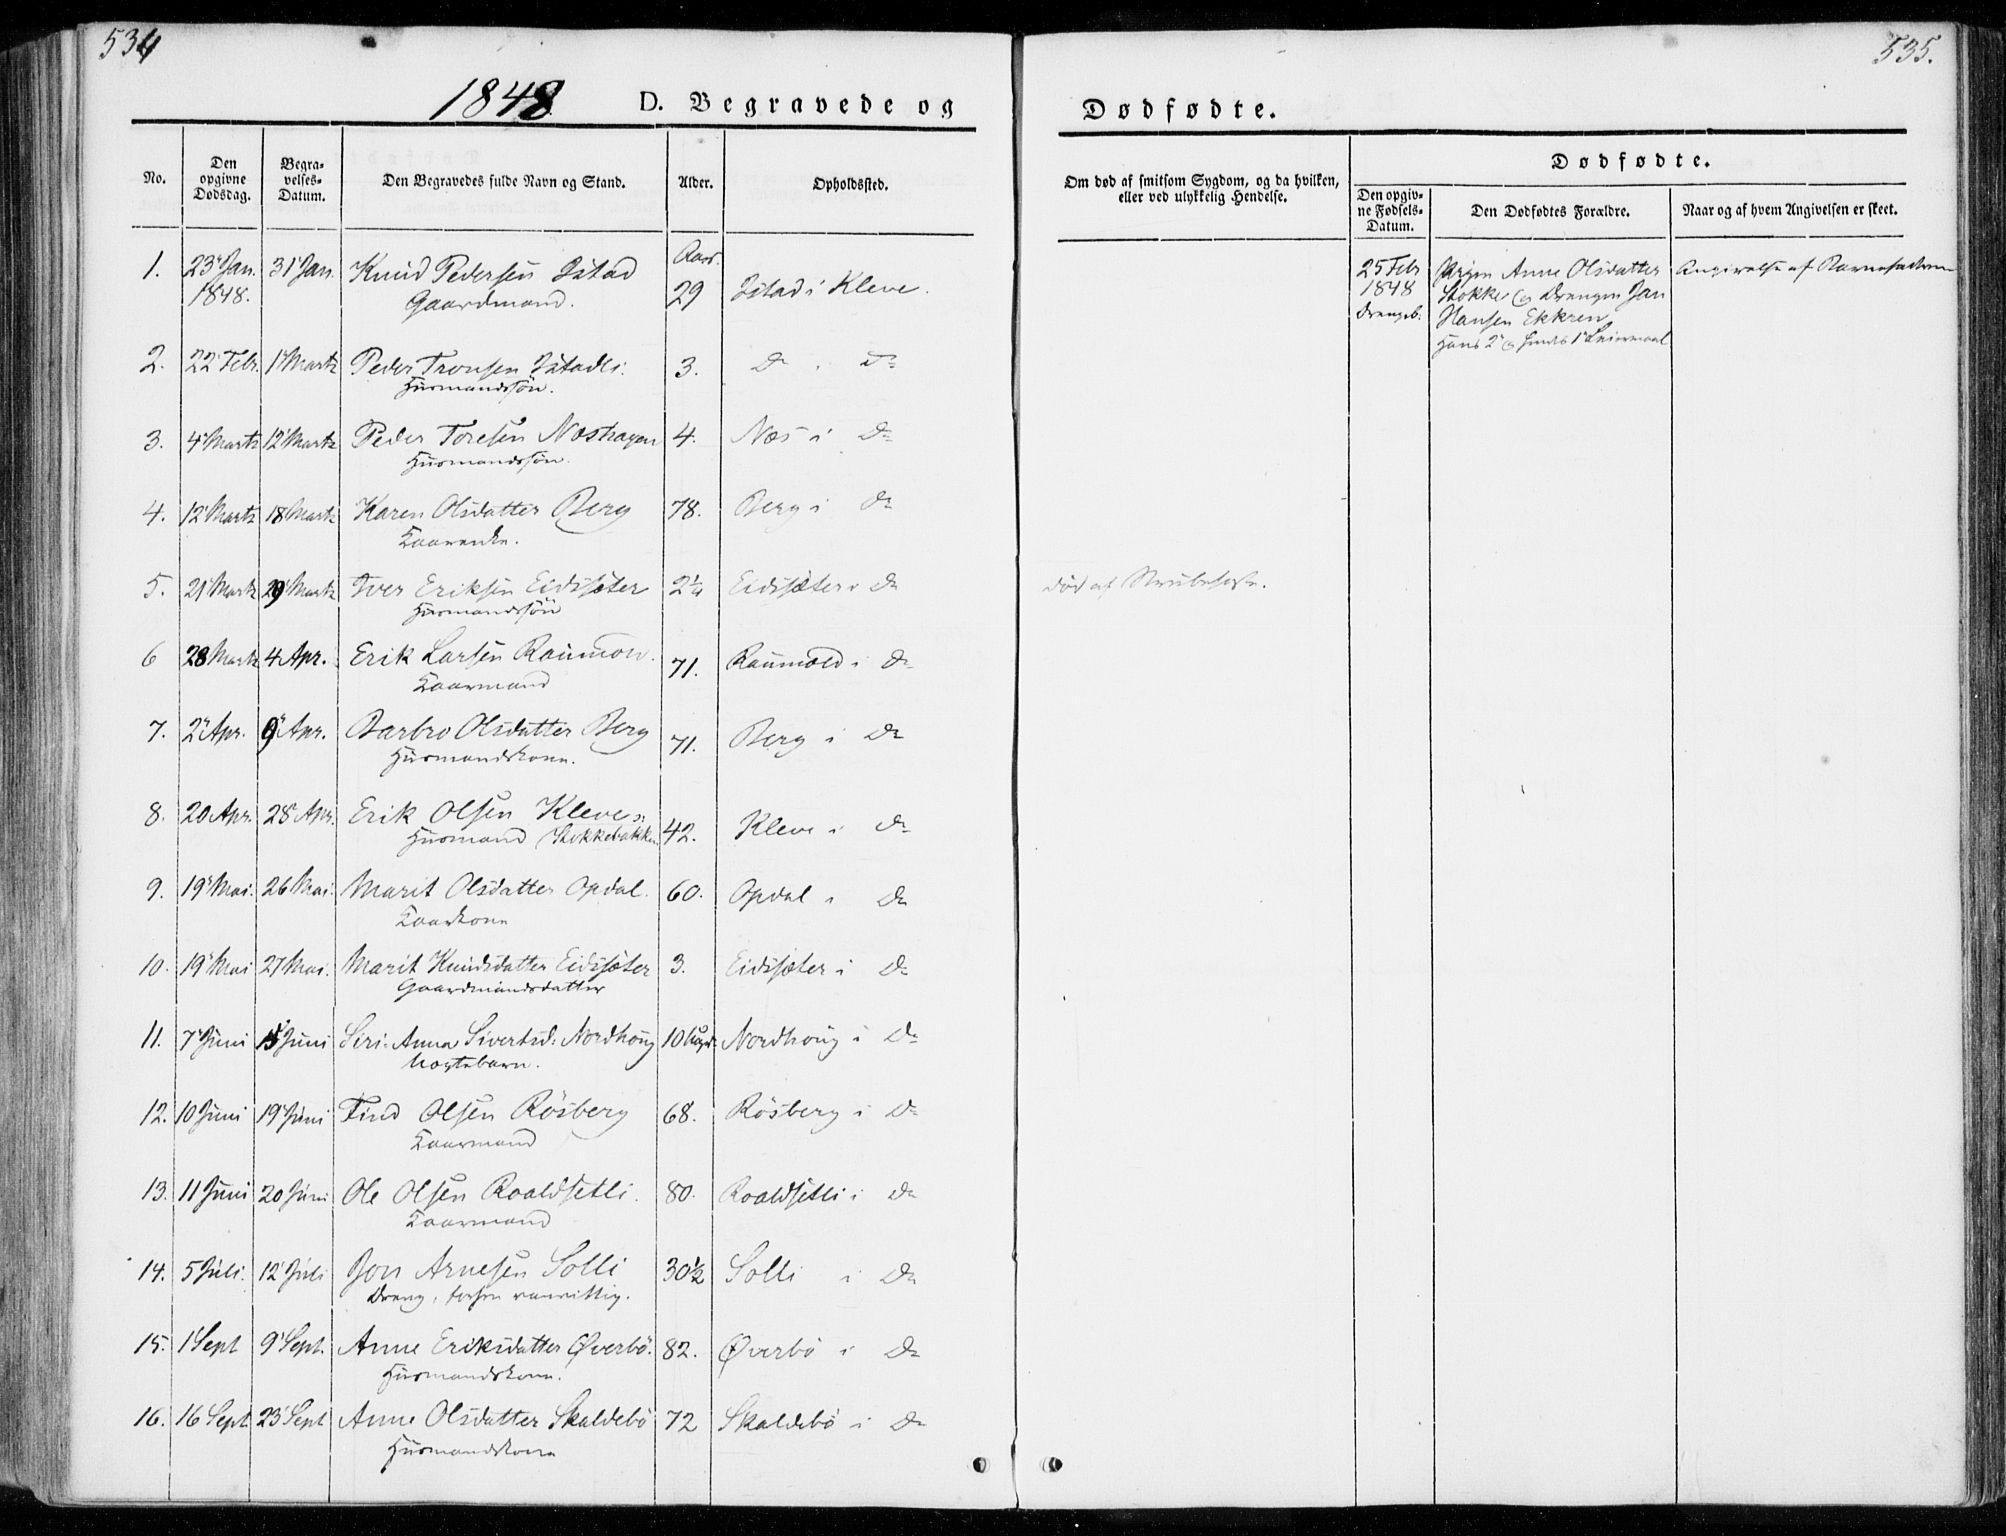 534
535.
1848 D. Begravede og Dødfødte.
No.
Den opgivne Dødsdag.
Begravelses-Datum.
Den Begravedes fulde Navn og Stand.
Alder.
Opholdssted.
Om død af smitsom Sygdom, og da hvilken, eller ved ulykkelig Hendelse.
Dødfødte.
Den opgivne Fødsels-Datum.
Den Dødfødtes Forældre.
Naar og af hvem Angivelsen er skeet.
1. 23 Jan. 31 Jan. Knud Pedersen Istad Aar.
1848. Gaardmand. 29 Istad i Kleve.
2. 22 Febr. 1 Martz Peder Tronsen Istadli 3. Do Do
Huusmandssøn.
3. 4 Martz 12 Martz Peder Toresen Næshagen 4. Næs i Do
Huusmandssøn.
4. 12 Martz 18 Martz Karen Olsdatter Berg 78. Berg i Do
Kaarenke.
5. 21 Martz 29 Martz Iver Eriksen Eidssæter 2¼ Eidssæter i Do død af Strubehoste.
Huusmandssøn
6 28 Martz 4 Apr. Erik Larsen Raumold 71. Raumold i Do
Kaarmand
7. 2 Apr. 9 Apr. Barbro Olsdatter Berg 71. Berg i Do
Huusmandskone.
8. 20 Apr. 28 Apr. Erik Olsen Kleve 42. Kleve i Do
Huusmand Stokkebakken
9. 19 Mai. 26 Mai. Marit Olsdatter Opdal. 60. Opdal i Do
Kaarkone
10. 19 Mai 27 Mai. Marit Knudsdatter Eidssæter 3. Eidssæter i Do
Gaardmandsdatter
11. 7 Juni 15 Juni Siri Anna Sivertsd: Nordhoug 10 Uger Nordhoug i Do
Uægtebarn.
12. 10 Juni 19 Juni Find Olsen Røsberg 68. Røsberg i Do
Kaarmand
13. 11 Juni 20 Juni Ole Olsen Roaldsetli. 80. Roaldsetli i Do
Kaarmand
14. 5 Juli. 12 Juli Jon Arnesen Solli 30½ Solli i Do
Dreng, vanvittig.
15. 1 Sept 9 Sept. Anne Eriksdatter Øverbø. 82. Øverbø i Do
Huusmandskone.
16. 16 Sept 23 Sept Anne Olsdatter Skaldebø 72 Skaldebø i Do
Huusmandskone
25 Febr Pigen Anne Olsdatter Angivelse af Barnefaderen
1848 Stokke og Drengen Jon
Drengeb. Hansen Ekkren
Hans 2 og hendes 1 Leiermaal